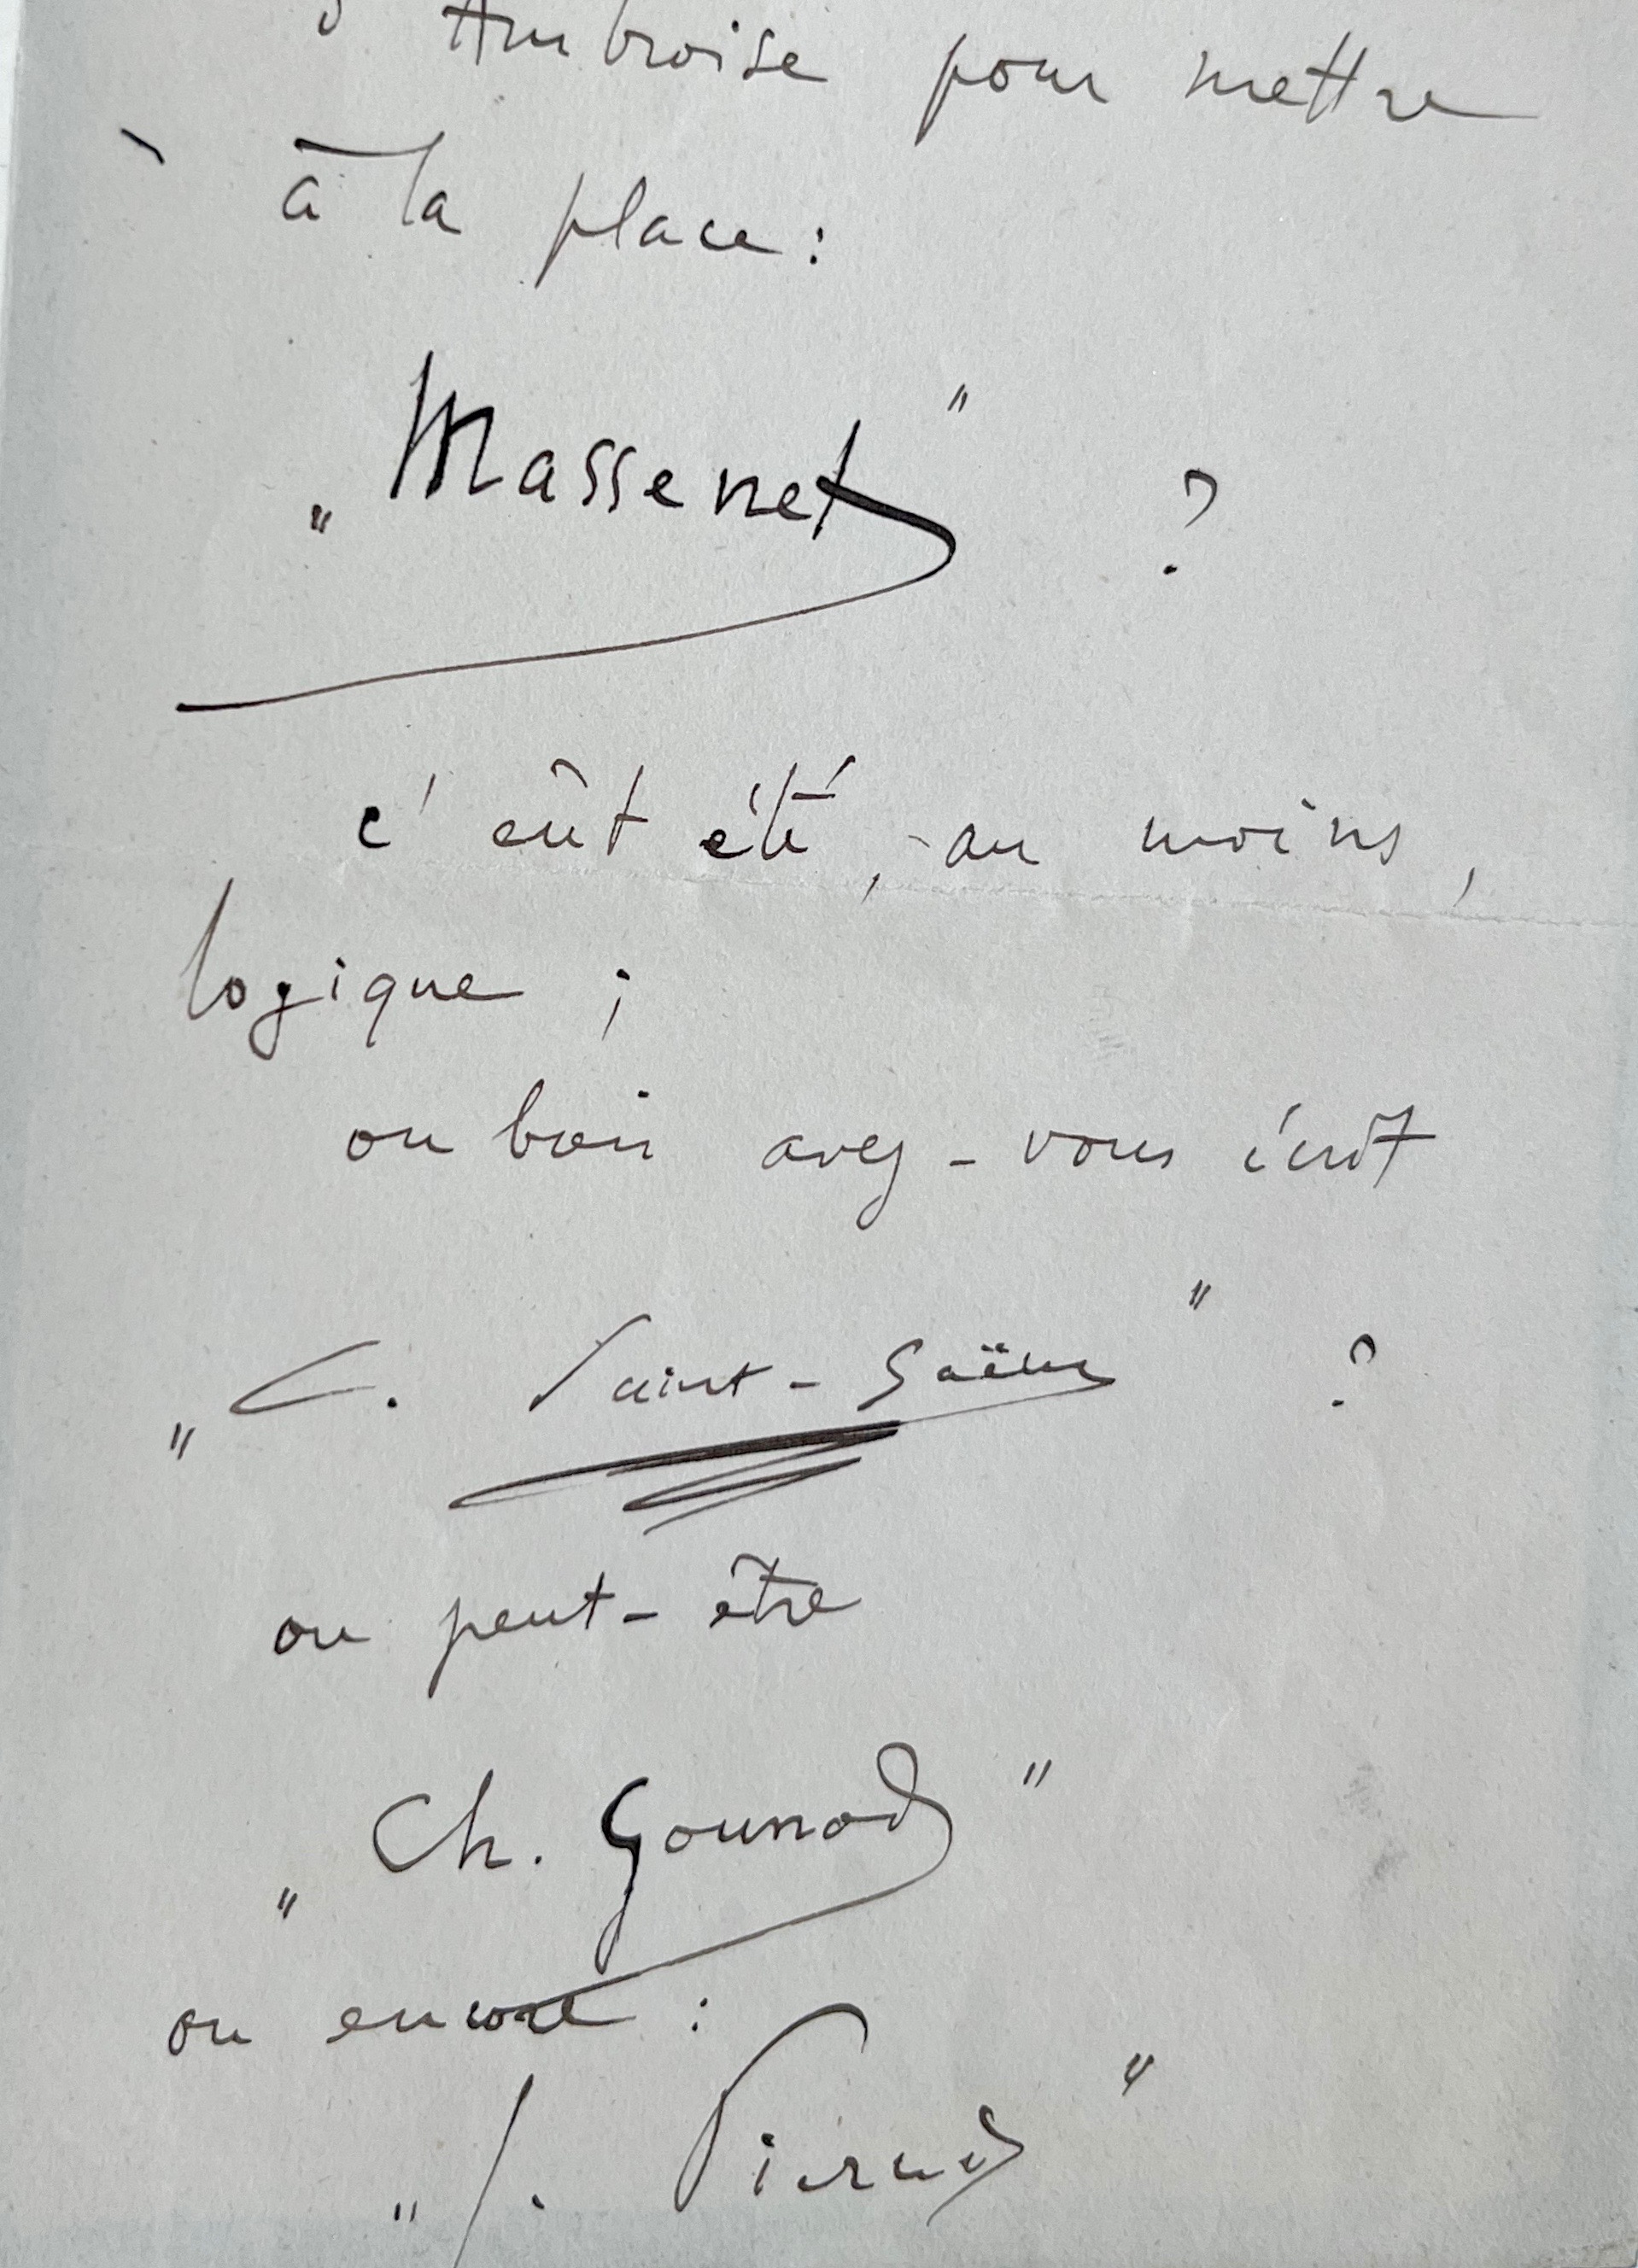 d'Ambroise pour mettre
à la place :
„ Massenet " ?
c'eût été, au moins,
logique ;
ou bien avez-vous écrit
„ C. Saint-Saëns " ?
ou peut-être
„ Ch. Gounod "
ou encore :